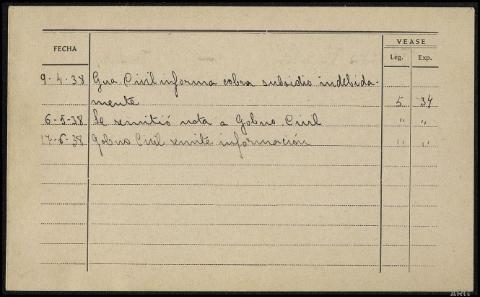 FECHA VEASE
Leg. Exp.
9-4-38 Gua. Civil informa cobra subsidio indebida-
mente 5 34
6-5-38 Se remitió nota a Gobno. Civil " "
17-6-38 Gobno Civil remite información " "